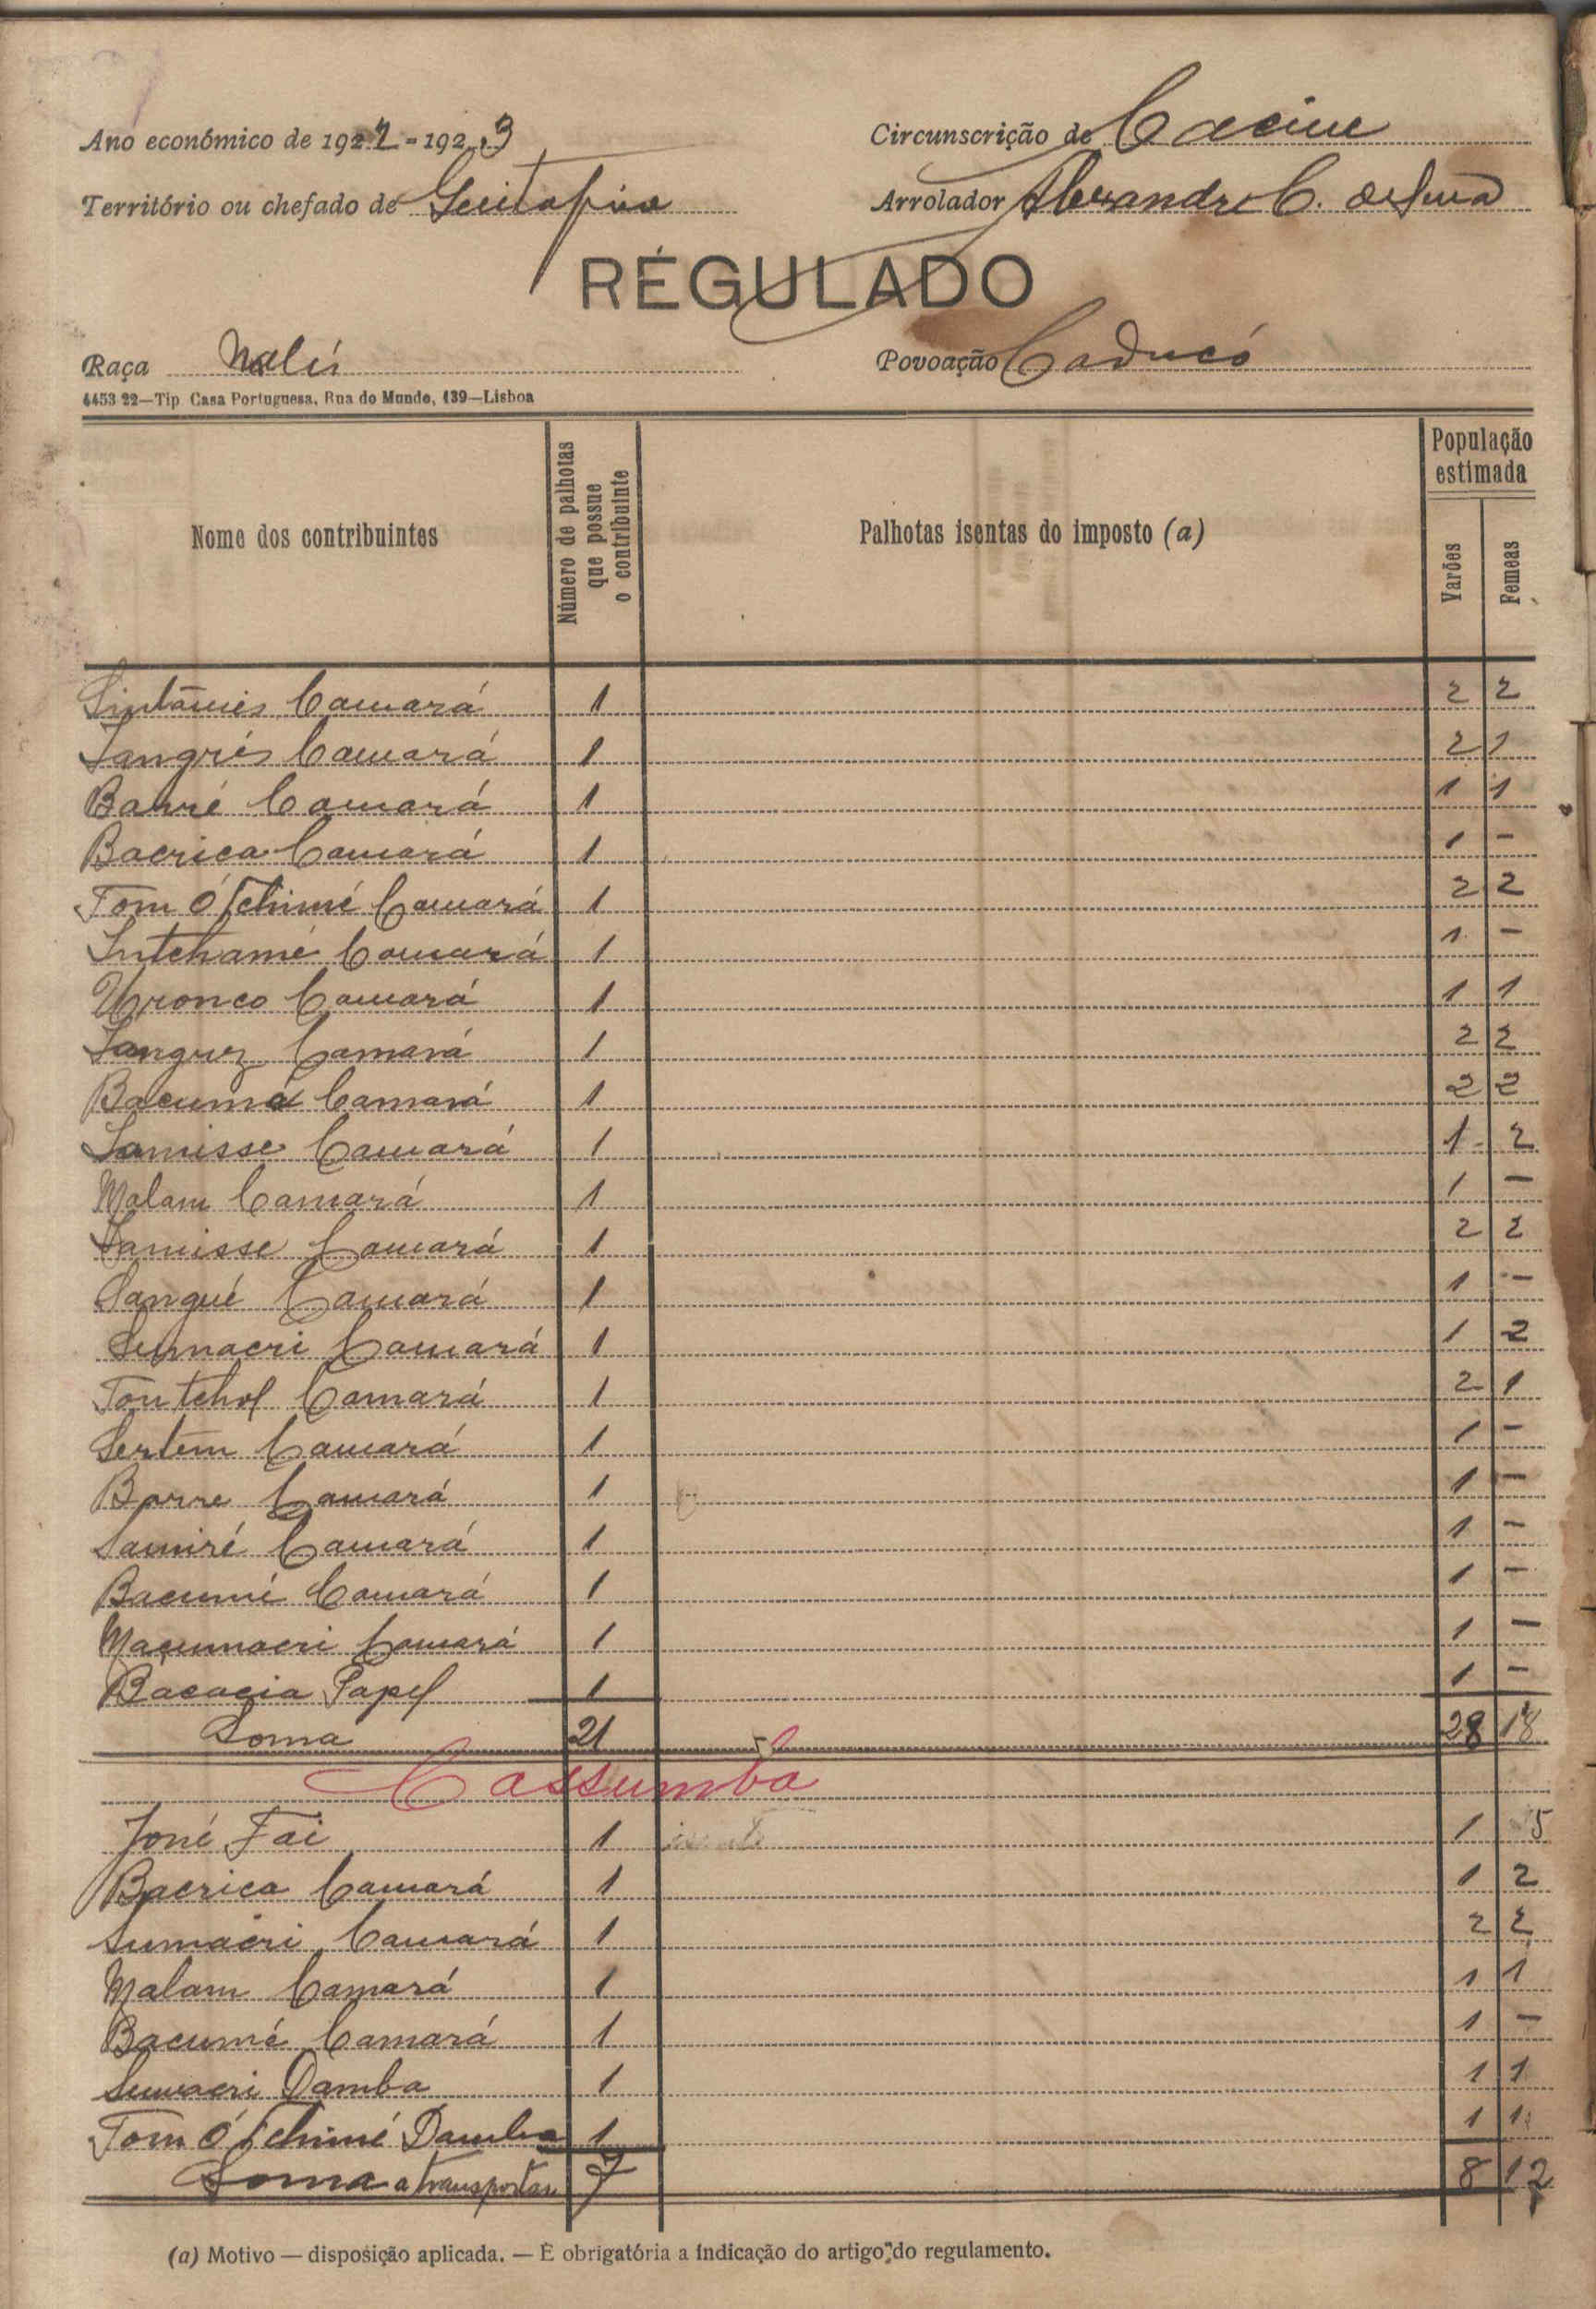 Ano económico de 1922-1923
Circunscrição de Cacine
Território ou chefado de Guitafine
Arrolador Alexandre C. de Sena
RÉGULADO
Raça Nalús
Povoação Caducó
4453 22—Tip Casa Portuguesa, Rua do Mundo, 139—Lisboa
Nome dos contribuintes
Número de palhotas que possue o contribuinte
Palhotas isentas do imposto (a)
População estimada
Varões
Femeas
Camará 1 2 2
Sangriés Camará 1 2 1
Barré Camará 1 1 1
Bacrica Camará 1 1 -
Tom Ó Tchimé Camará 1 2 2
Intchamé Camará 1 1 -
Uronco Camará 1 1 1
Sanguez Camará 1 2 2
Bacumá Camará 1 2 2
Lamisse Camará 1 1 2
Malam Camará 1 1 -
Lamisse Camará 1 2 2
Sangué Camará 1 1 -
Sumacri Camará 1 1 2
Camará 1 2 1
Sertem Camará 1 1 -
Borre Camará 1 1 -
Samiré Camará 1 1 -
Bacumé Camará 1 1 -
Maçumacri Camará 1 1 -
Papel 1 1 -
Soma 21 28 18
Cassumba
Joné Fai 1 1 5
Bacrica Camará 1 1 2
Sumacri Camará 1 2 2
Malam Camará 1 1 1
Bacumé Camará 1 1 -
Sumacri Damba 1 1 1
Tom Ó Tchimé Damba 1 1 1
Soma a transportar 7 8 12
(a) Motivo — disposição aplicada. — É obrigatória a indicação do artigo do regulamento.